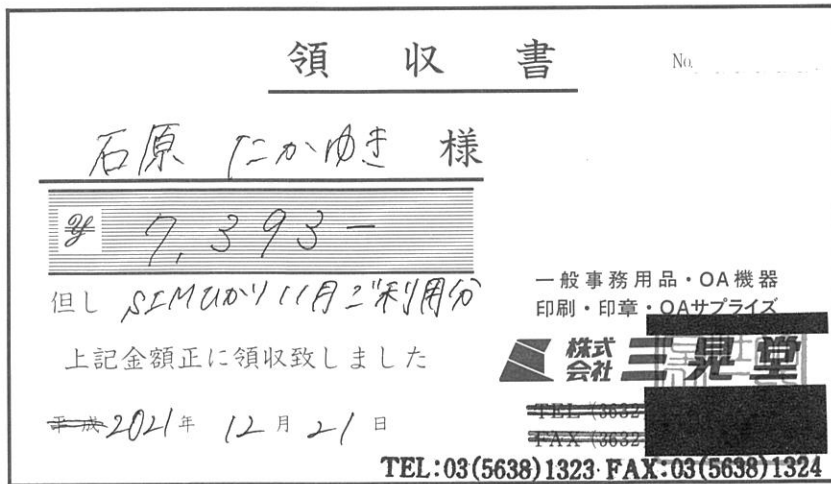 領収書
No.
石原 たかゆき 様
¥ 7,393-
但し SIMひかり11月ご利用分
上記金額正に領収致しました
平成 2021年 12月 21日
一般事務用品・OA機器
印刷・印章・OAサプライズ
株式会社 三晃堂
TEL (3632-
FAX (3632-
TEL:03(5638)1323・FAX:03(5638)1324